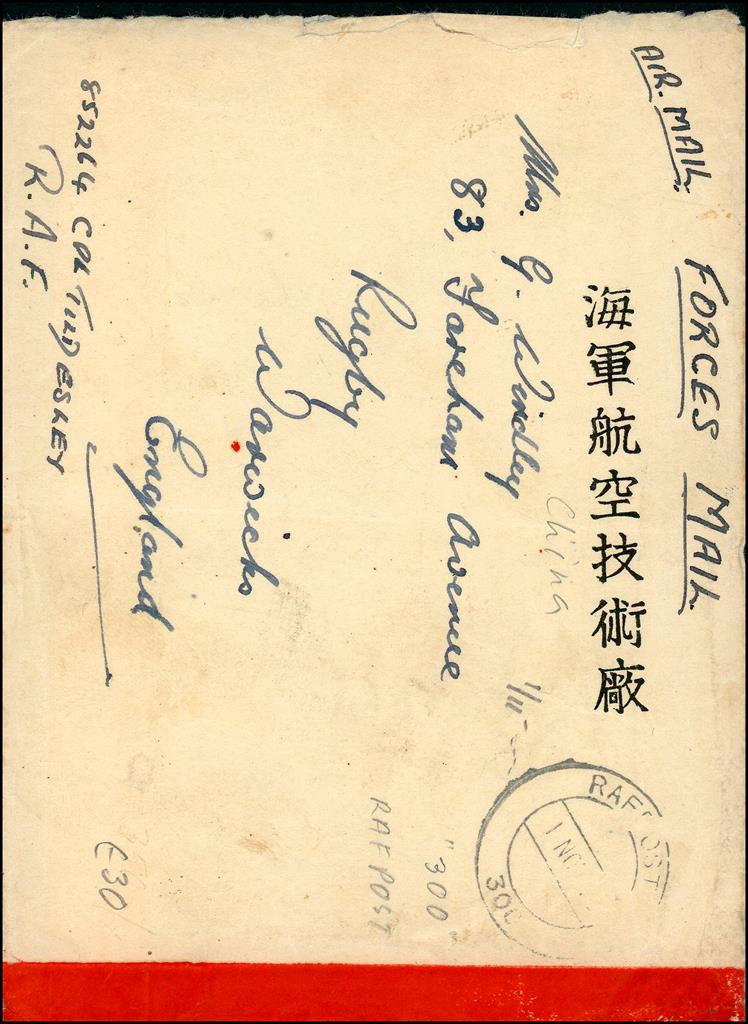 AIR. MAIL.
FORCES MAIL
海軍航空技術廠
RAF POST
1 NO
300
Mrs. G. Windley
China
1/11-
83, Fareham Avenue
"300"
RAF POST
Rugby
Warwicks
England
£30/
852264 CPL TILDESLEY
R.A.F.